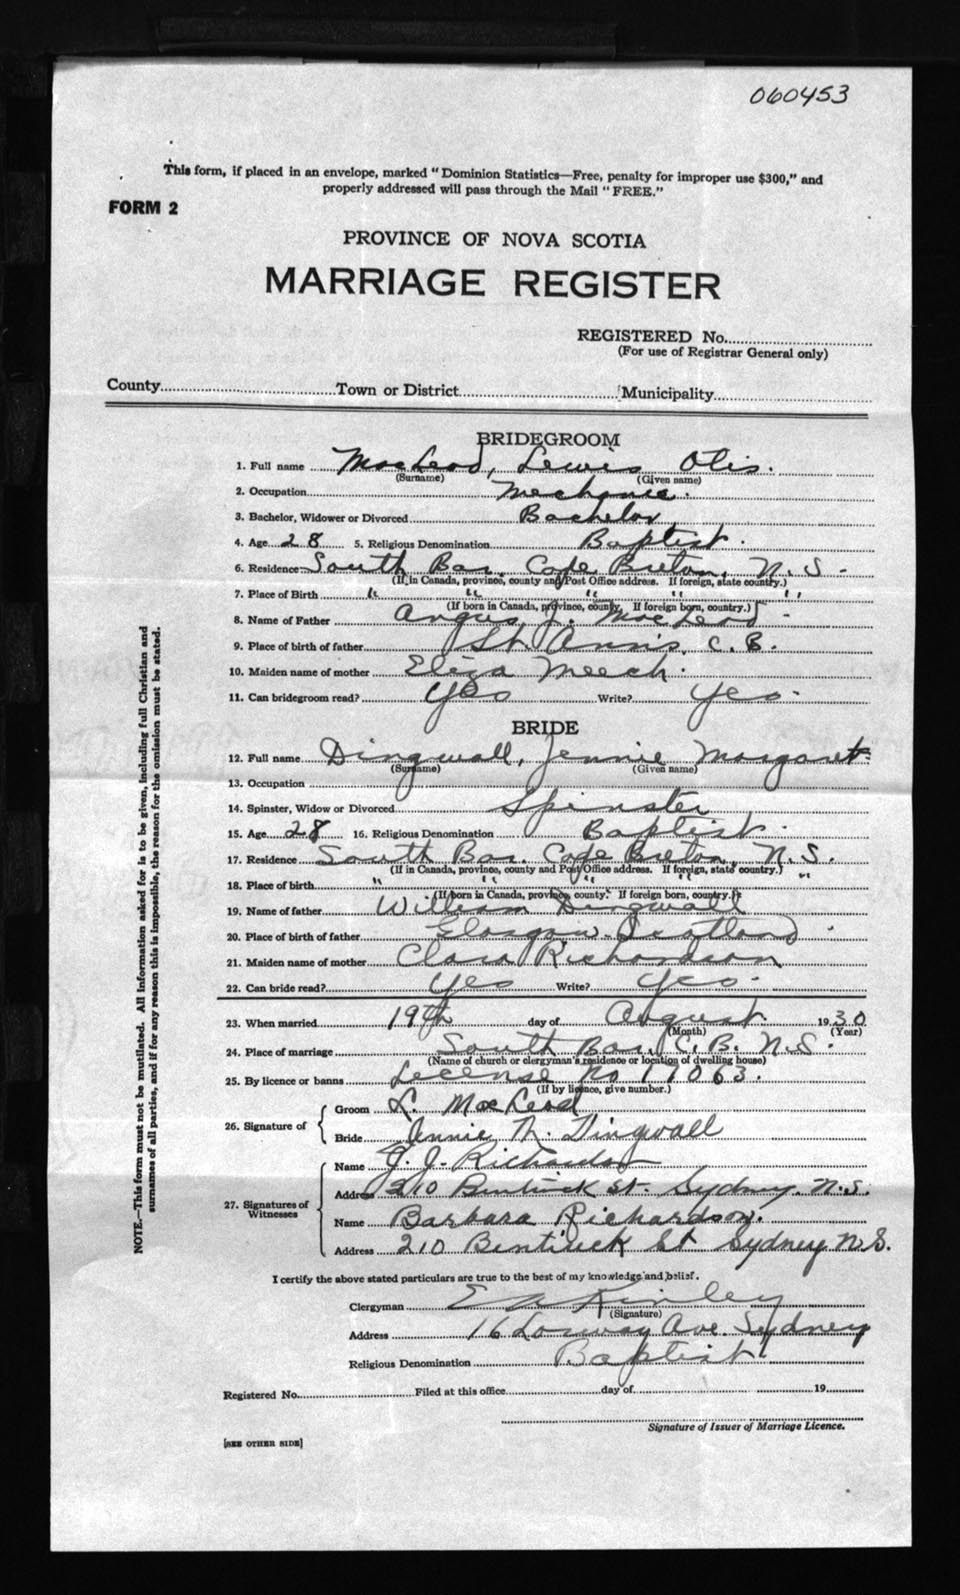 060453
This form, if placed in an envelope, marked "Dominion Statistics—Free, penalty for improper use $300," and
properly addressed will pass through the Mail "FREE."
FORM 2
PROVINCE OF NOVA SCOTIA
MARRIAGE REGISTER
REGISTERED No.
(For use of Registrar General only)
County Town or District Municipality
BRIDEGROOM
1. Full name MacLeod, Lewis Otis.
(Surname) (Given name)
2. Occupation Mechanic.
3. Bachelor, Widower or Divorced Bachelor
4. Age 28 5. Religious Denomination Baptist.
6. Residence South Bar, Cape Breton, N.S.
(If in Canada, province, county and Post Office address. If foreign, state country.)
7. Place of Birth " " " " "
(If born in Canada, province, county. If foreign born, country.)
8. Name of Father Angus J. MacLeod
9. Place of birth of father St. Ann's, C.B.
10. Maiden name of mother Eliza Meech.
11. Can bridegroom read? Yes Write? Yes.
BRIDE
12. Full name Dingwall, Jennie Margaret.
(Surname) (Given name)
13. Occupation
14. Spinster, Widow or Divorced Spinster
15. Age 28 16. Religious Denomination Baptist.
17. Residence South Bar, Cape Breton, N.S.
(If in Canada, province, county and Post Office address. If foreign, state country.)
18. Place of birth " " " "
(If born in Canada, province, county. If foreign born, country.)
19. Name of father William Dingwall
20. Place of birth of father Glasgow, Scotland.
21. Maiden name of mother Clara Richardson
22. Can bride read? Yes Write? Yes.
23. When married 19th day of August 1930
(Month) (Year)
24. Place of marriage South Bar, C.B. N.S.
(Name of church or clergyman's residence or location of dwelling house)
25. By licence or banns License No 11063.
(If by licence, give number.)
26. Signature of
Groom L. MacLeod
Bride Jennie M. Dingwall
27. Signatures of Witnesses
Name J. J. Richardson
Address 210 Bentinck St. Sydney. N.S.
Name Barbara Richardson.
Address 210 Bentinck St Sydney N.S.
I certify the above stated particulars are true to the best of my knowledge and belief.
Clergyman Kinley
(Signature)
Address 16 Ave. Sydney
Religious Denomination Baptist
Registered No. Filed at this office day of 19
Signature of Issuer of Marriage Licence.
[SEE OTHER SIDE]
NOTE.—This form must not be mutilated. All information asked for is to be given, including full Christian and
surnames of all parties, and if for any reason this is impossible, the reason for the omission must be stated.